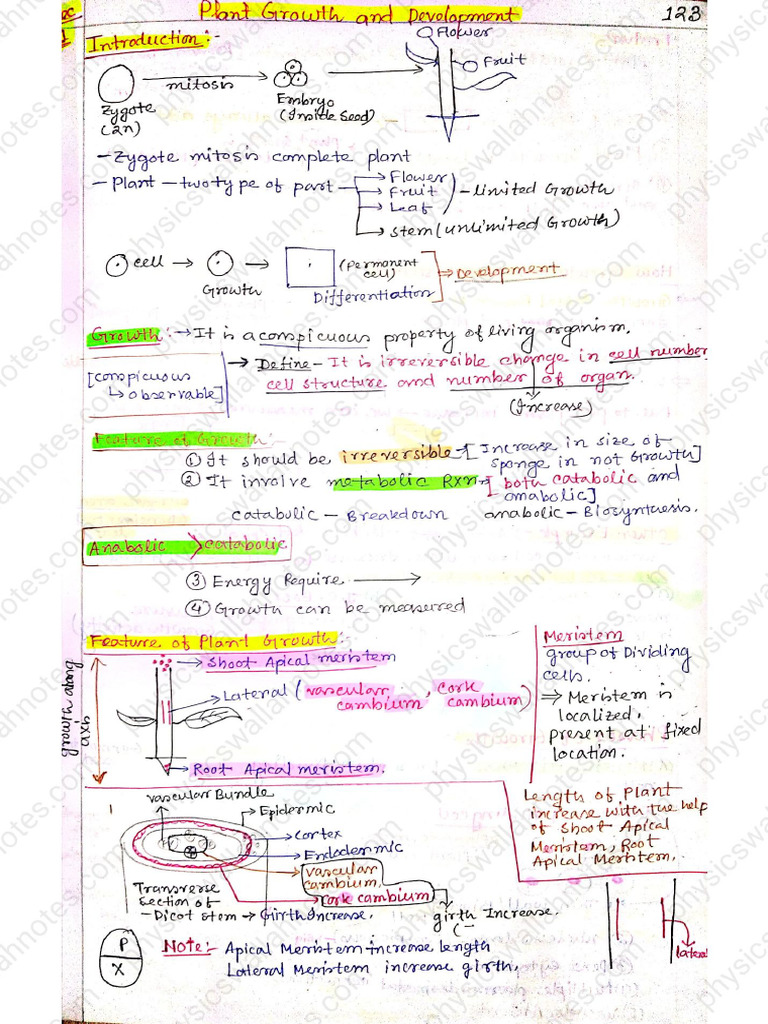 Plant Growth and Development
123
Introduction:-
Flower
Fruit
mitosis
Zygote
(2n)
Embryo
(Inside Seed)
- Zygote mitosis complete plant
- Plant - two type of part → Flower
→ Fruit
→ Leaf
- limited Growth
→ stem (unlimited Growth)
cell → Growth → (Permanent
cell)
Differentiation
⇒ Development
Growth:- → It is a conspicuous property of living organism.
[conspicuous
↳ observable]
→ Define - It is irreversible change in cell number
cell structure and number of organ.
(Increase)
Feature of Growth:
① It should be irreversible - [Increase in size of
sponge in not Growth]
② It involve metabolic Rxn → [both catabolic and
anabolic]
catabolic - Breakdown anabolic - Biosynthesis.
Anabolic > catabolic
③ Energy Require →
④ Growth can be measured
Feature of Plant Growth:-
growth along
axis
→ Shoot Apical meristem
→ Lateral (vascular
cambium, cork
cambium)
→ Root Apical meristem.
Meristem
group of Dividing
cells.
⇒ Meristem is
localized,
present at fixed
location.
Length of Plant
increase with the help
of Shoot Apical
Meristem, Root
Apical Meristem.
vascular Bundle
→ Epidermic
→ cortex
→ Endodermic
→ vascular
cambium
→ cork cambium
Transverse
section of
- Dicot stem → Girth Increase.
girth Increase.
lateral
P
X
Note:- Apical Meristem increase length
Lateral Meristem increase girth.
physicswallahnotes.com